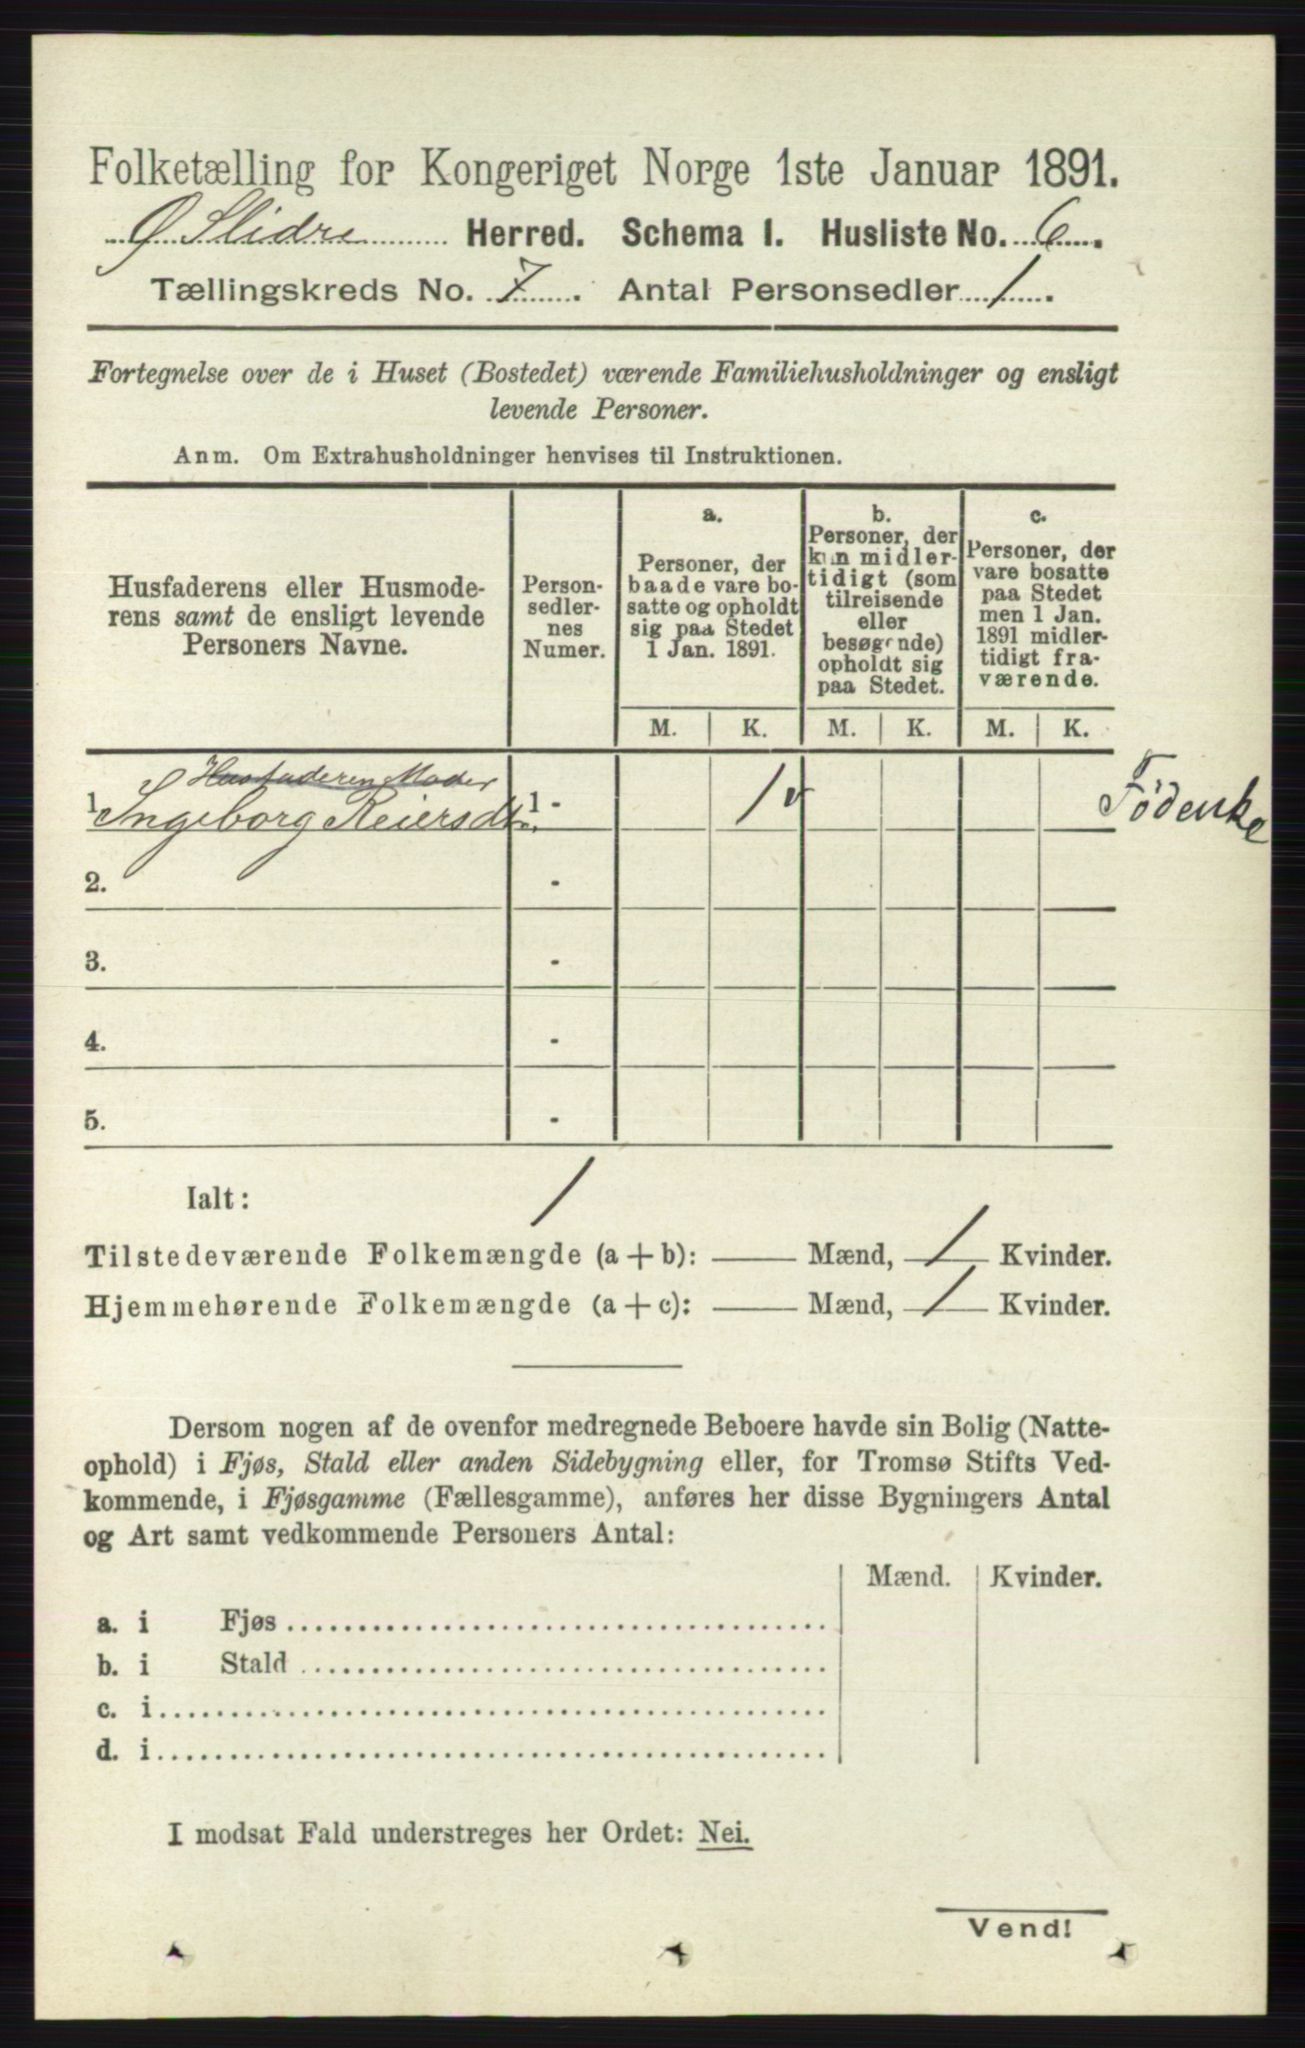 Folketælling for Kongeriget Norge 1ste Januar 1891.
Ø Slidre Herred. Schema I. Husliste No. 6.
Tællingskreds No. 7. Antal Personsedler 1.
Fortegnelse over de i Huset (Bostedet) værende Familiehusholdninger og ensligt
levende Personer.
Anm. Om Extrahusholdninger henvises til Instruktionen.
Husfaderens eller Husmode-
rens samt de ensligt levende
Personers Navne.
Person-
sedler-
nes
Numer.
a.
Personer, der
baade vare bo-
satte og opholdt
sig paa Stedet
1 Jan. 1891.
b.
Personer, der
kun midler-
tidigt (som
tilreisende
eller
besøgende)
opholdt sig
paa Stedet.
c.
Personer, der
vare bosatte
paa Stedet
men 1 Jan.
1891 midler-
tidigt fra-
værende.
M. K. M. K. M. K.
Husfaderen Moder
1. Ingeborg Reiersdtr. 1 - 1 Føderke
2. -
3. -
4. -
5. -
Ialt: 1
Tilstedeværende Folkemængde (a + b): — Mænd, 1 Kvinder.
Hjemmehørende Folkemængde (a + c): — Mænd, 1 Kvinder.
Dersom nogen af de ovenfor medregnede Beboere havde sin Bolig (Natte-
ophold) i Fjøs, Stald eller anden Sidebygning eller, for Tromsø Stifts Ved-
kommende, i Fjøsgamme (Fællesgamme), anføres her disse Bygningers Antal
og Art samt vedkommende Personers Antal:
Mænd. Kvinder.
a. i Fjøs
b. i Stald
c. i
d. i
I modsat Fald understreges her Ordet: Nei.
Vend!